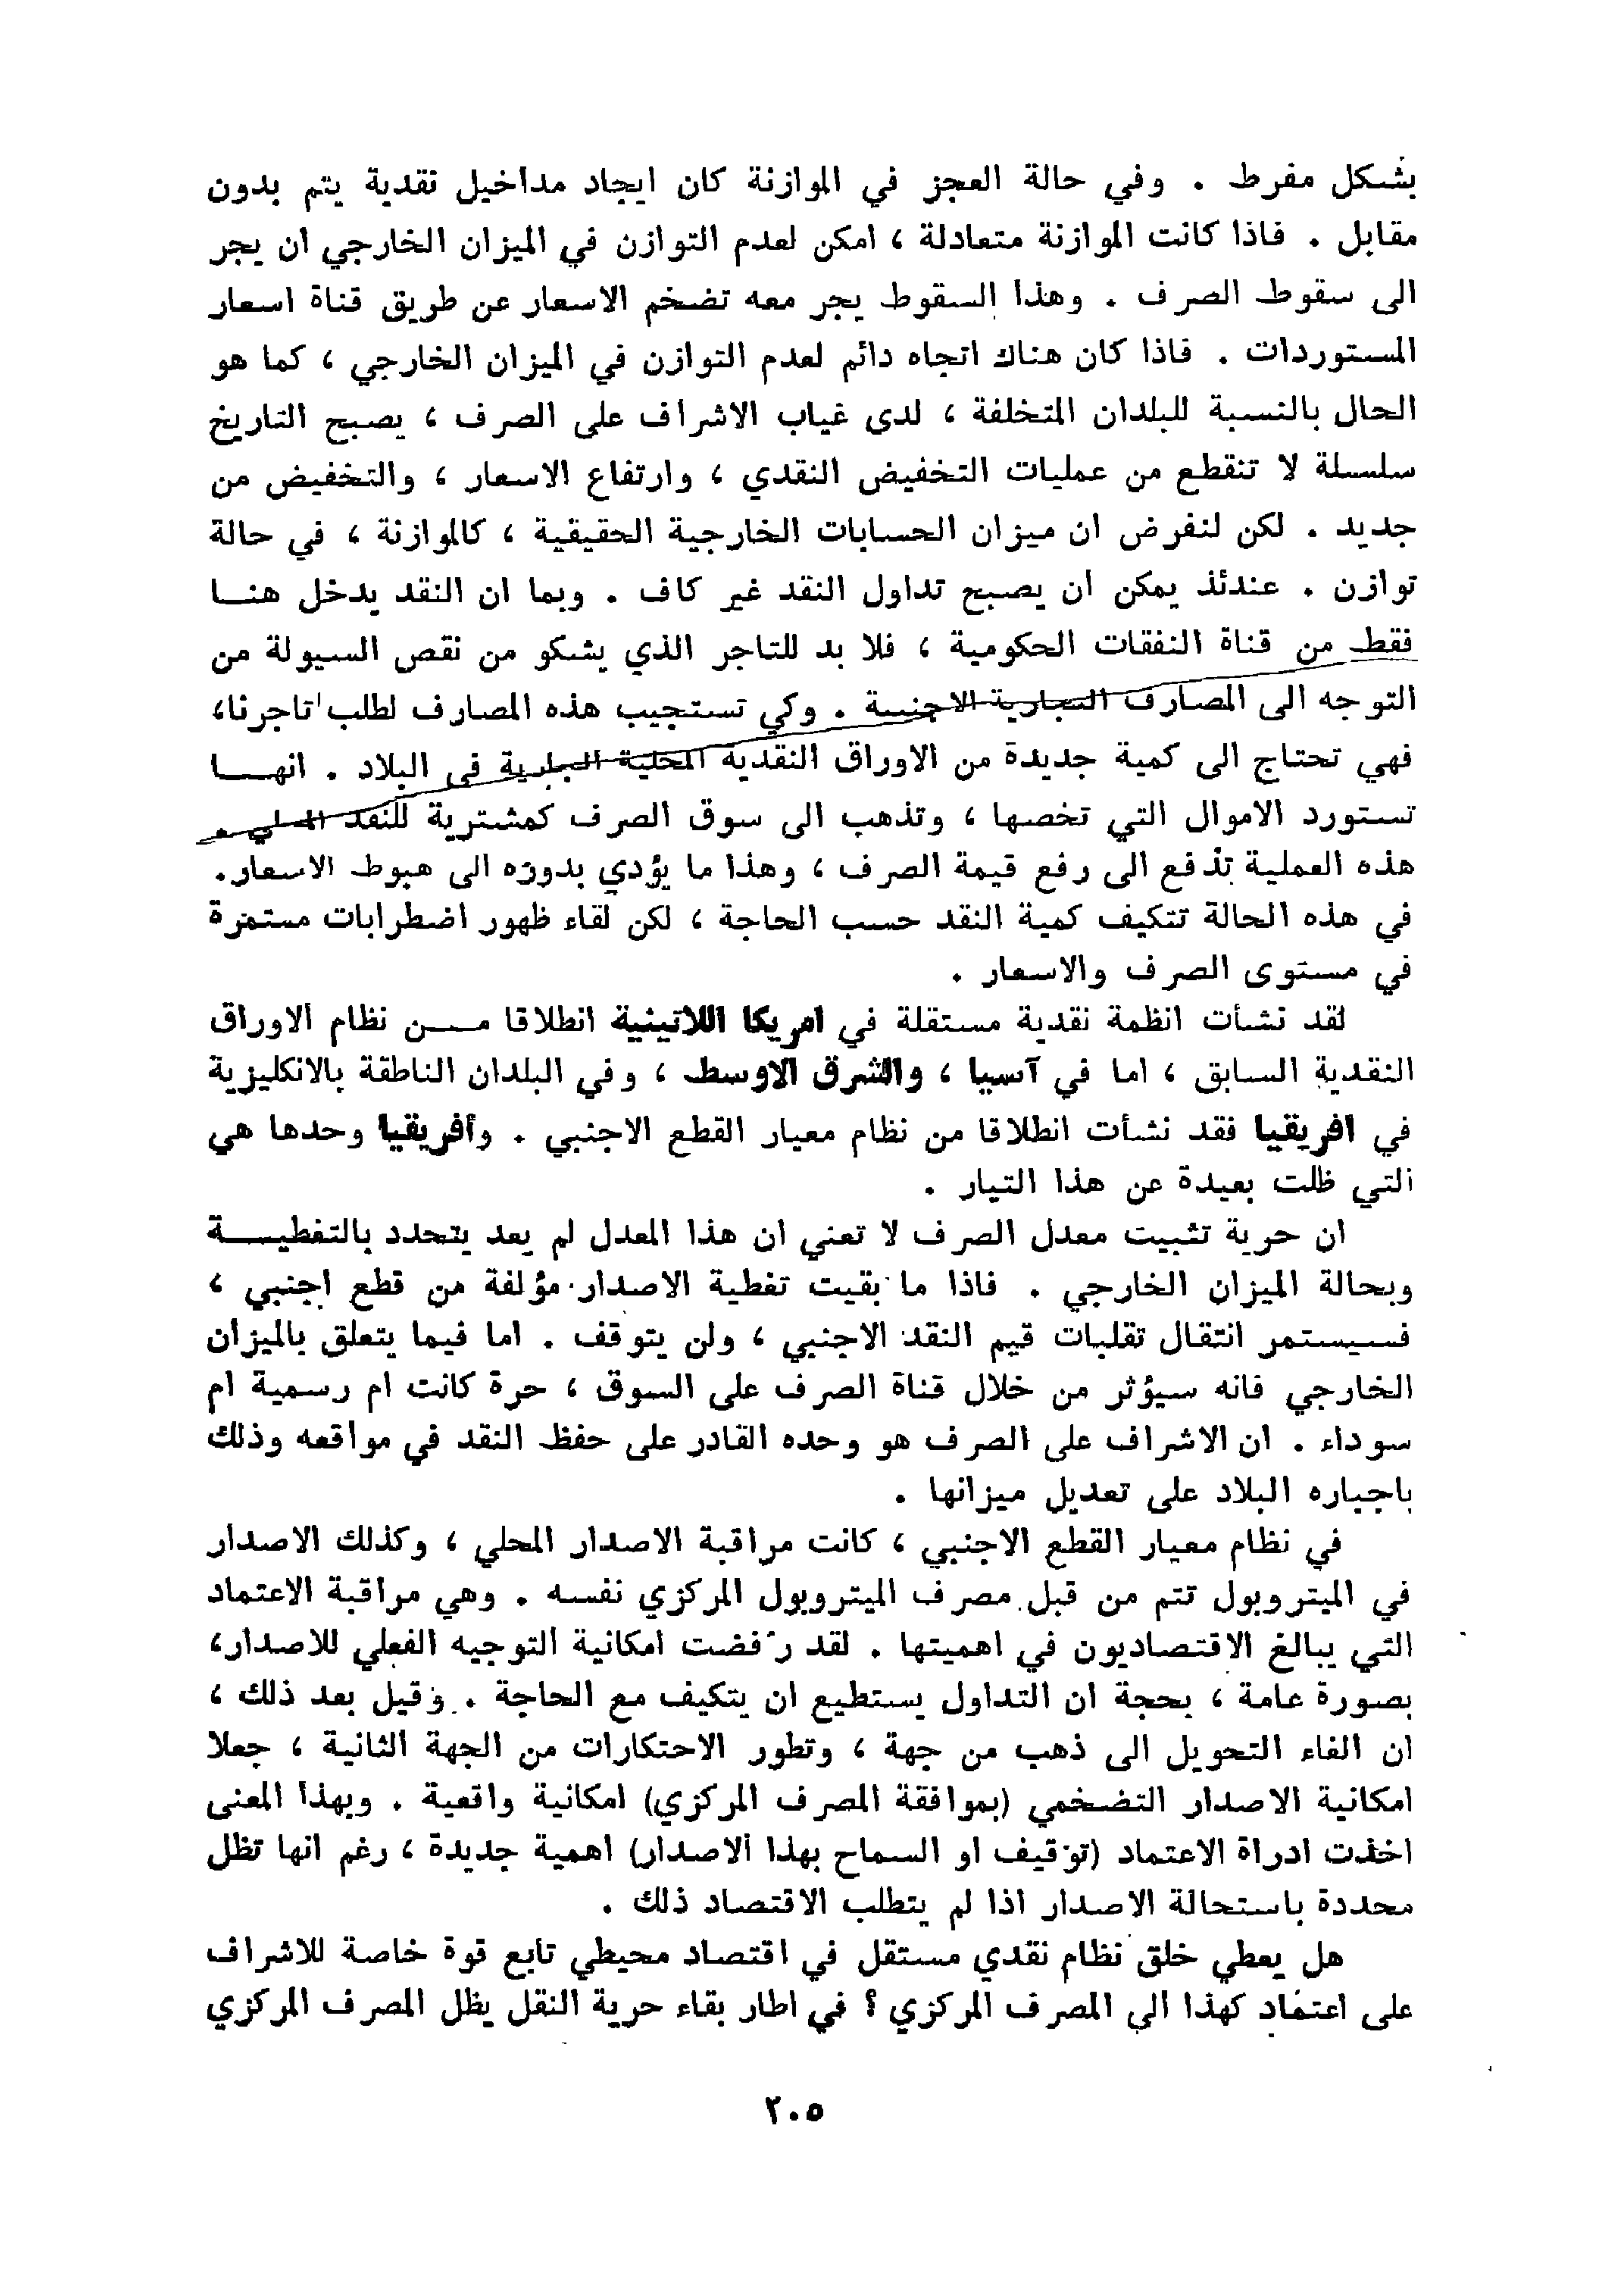 بشكل مفرط . وفي حالة العجز في الموازنة كان ايجاد مداخيل نقدية يتم بدون
مقابل . فاذا كانت الموازنة متعادلة ، امكن لعدم التوازن في الميزان الخارجي ان يجر
الى سقوط الصرف . وهذا السقوط يجر معه تضخم الاسعار عن طريق قناة اسعار
المستوردات . فاذا كان هناك اتجاه دائم لعدم التوازن في الميزان الخارجي ، كما هو
الحال بالنسبة للبلدان المتخلفة ، لدى غياب الاشراف على الصرف ، يصبح التاريخ
سلسلة لا تنقطع من عمليات التخفيض النقدي ، وارتفاع الاسعار ، والتخفيض من
جديد . لكن لنفرض ان ميزان الحسابات الخارجية الحقيقية ، كالموازنة ، في حالة
توازن . عندئذ يمكن ان يصبح تداول النقد غير كاف . وبما ان النقد يدخل هنا
فقط من قناة النفقات الحكومية ، فلا بد للتاجر الذي يشكو من نقص السيولة من
التوجه الى المصارف التجارية الاجنبية . وكي تستجيب هذه المصارف لطلب تاجرنا،
فهي تحتاج الى كمية جديدة من الاوراق النقدية المحلية الجارية في البلاد . انها
تستورد الاموال التي تخصها ، وتذهب الى سوق الصرف كمشترية للنقد المحلي .
هذه العملية تدفع الى رفع قيمة الصرف ، وهذا ما يؤدي بدوره الى هبوط الاسعار.
في هذه الحالة تتكيف كمية النقد حسب الحاجة ، لكن لقاء ظهور اضطرابات مستمرة
في مستوى الصرف والاسعار .
لقد نشأت انظمة نقدية مستقلة في امريكا اللاتينية انطلاقا من نظام الاوراق
النقدية السابق ، اما في آسيا ، والشرق الاوسط ، وفي البلدان الناطقة بالانكليزية
في افريقيا فقد نشأت انطلاقا من نظام معيار القطع الاجنبي . وأفريقيا وحدها هي
التي ظلت بعيدة عن هذا التيار .
ان حرية تثبيت معدل الصرف لا تعني ان هذا المعدل لم يعد يتحدد بالتغطية
وبحالة الميزان الخارجي . فاذا ما بقيت تغطية الاصدار مؤلفة من قطع اجنبي ،
فسيستمر انتقال تقلبات قيم النقد الاجنبي ، ولن يتوقف . اما فيما يتعلق بالميزان
الخارجي فانه سيؤثر من خلال قناة الصرف على السوق ، حرة كانت ام رسمية ام
سوداء . ان الاشراف على الصرف هو وحده القادر على حفظ النقد في مواقعه وذلك
باجباره البلاد على تعديل ميزانها .
في نظام معيار القطع الاجنبي ، كانت مراقبة الاصدار المحلي ، وكذلك الاصدار
في الميتروبول تتم من قبل مصرف الميتروبول المركزي نفسه . وهي مراقبة الاعتماد
التي يبالغ الاقتصاديون في اهميتها . لقد رُفضت امكانية التوجيه الفعلي للاصدار،
بصورة عامة ، بحجة ان التداول يستطيع ان يتكيف مع الحاجة . وقيل بعد ذلك ،
ان الغاء التحويل الى ذهب من جهة ، وتطور الاحتكارات من الجهة الثانية ، جعلا
امكانية الاصدار التضخمي (بموافقة المصرف المركزي) امكانية واقعية . وبهذا المعنى
اخذت ادراة الاعتماد (توقيف او السماح بهذا الاصدار) اهمية جديدة ، رغم انها تظل
محددة باستحالة الاصدار اذا لم يتطلب الاقتصاد ذلك .
هل يعطي خلق نظام نقدي مستقل في اقتصاد محيطي تابع قوة خاصة للاشراف
على اعتماد كهذا الى المصرف المركزي ؟ في اطار بقاء حرية النقل يظل المصرف المركزي
٢٠٥